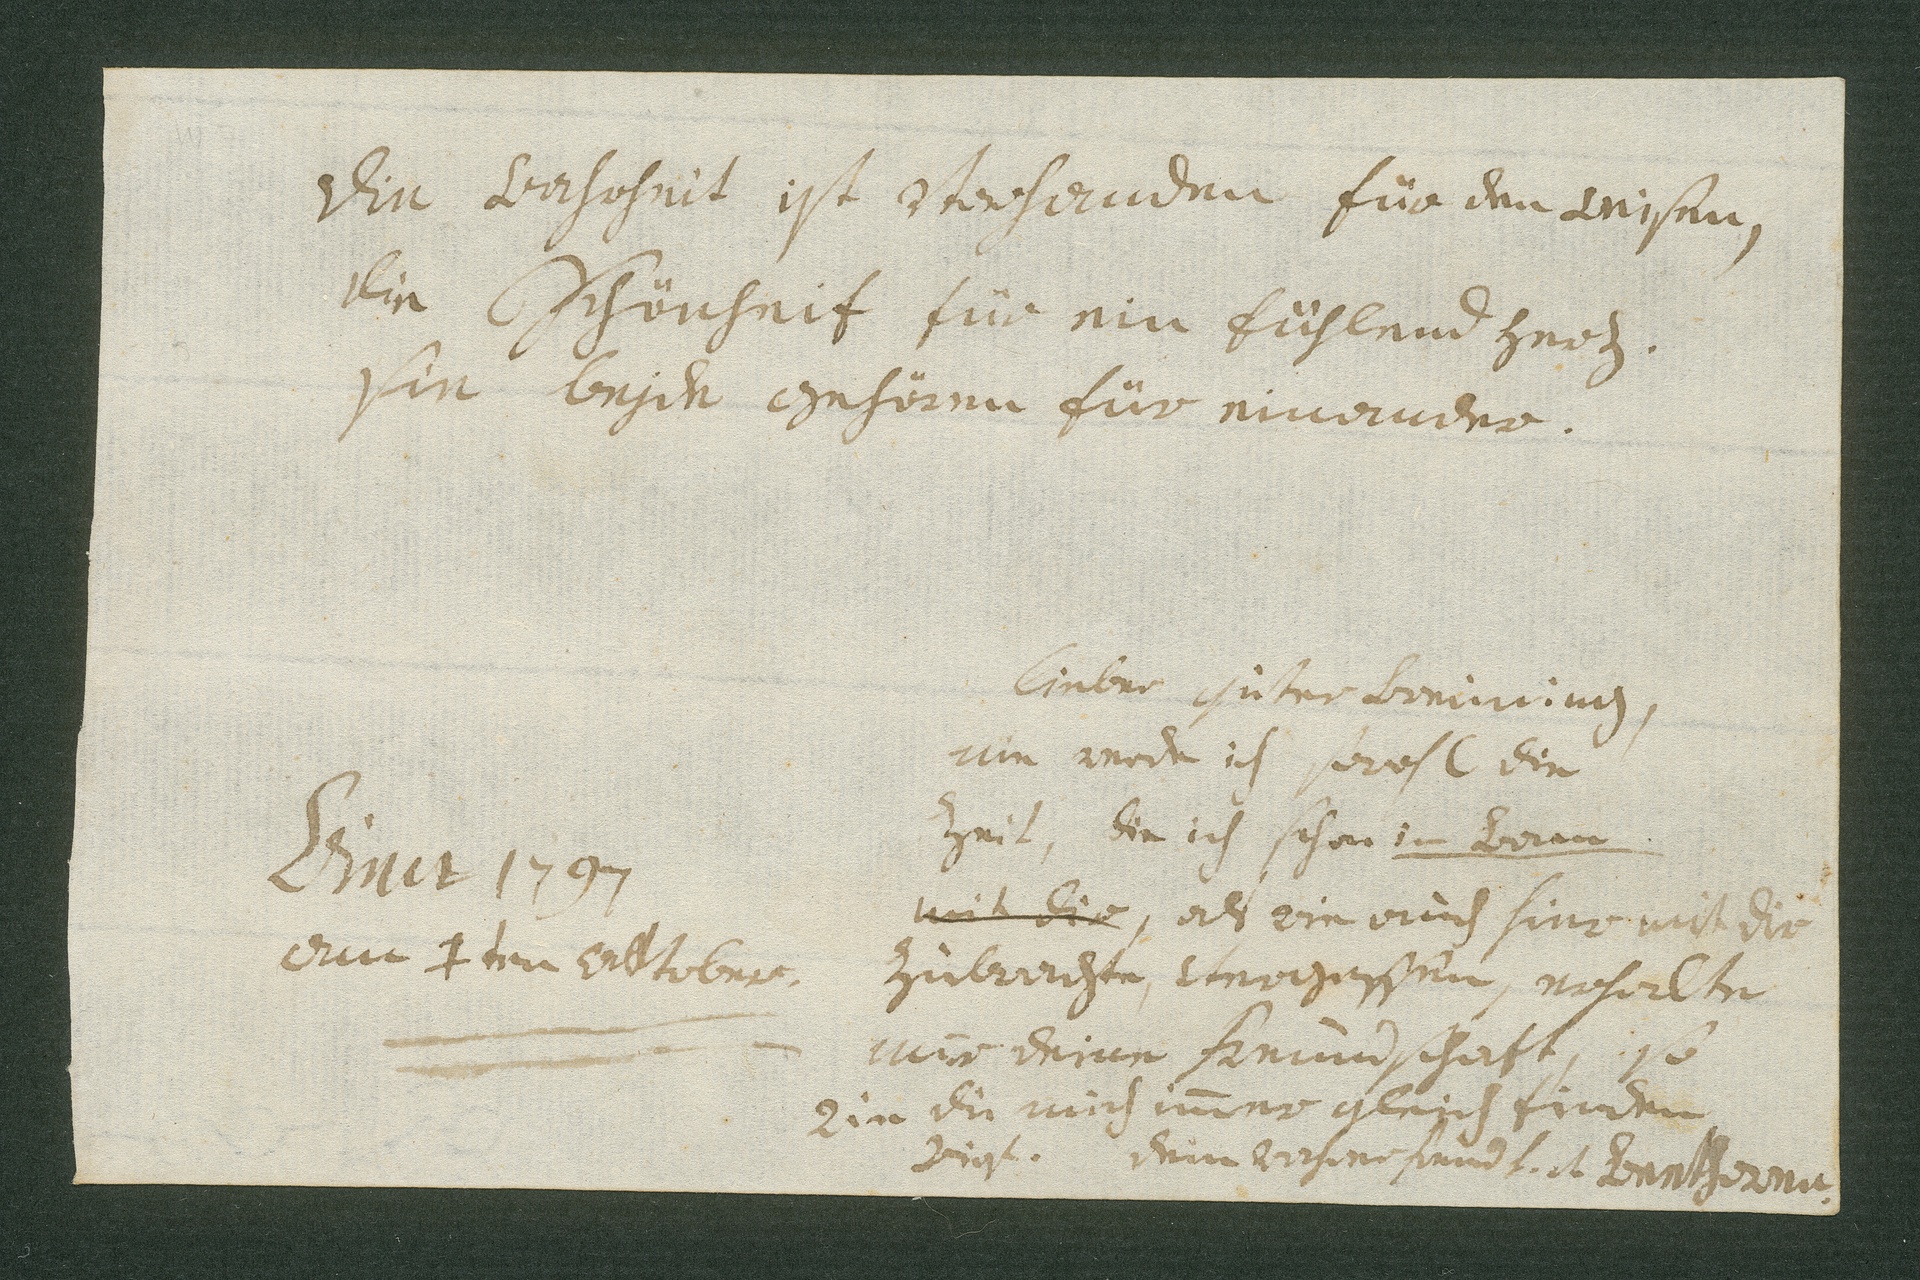 die Wahrheit ist vorhanden für den weisen,
die Schönheit für ein fühlend Herz.
sie beyde gehören für einander.
lieber guter Breuning,
nie werde ich sowohl die
Zeit, die ich schon in Bonn
mit dir, als wie auch hier mit dir
zubrachte, vergessen, erhalte
mir deine freundschaft, so
wie du mich im̅er gleich finden
wirst. dein wahrer freund L. v. Beethowen.
Vien 1797
am 1ten oktober.